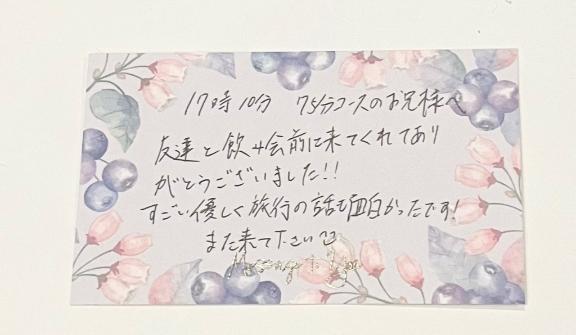 17時10分 75分コースのお兄様へ
友達と飲み会前に来てくれてあり
がとうございました!!
すごい優しく旅行の話も面白かったです!
また来て下さい
Message for You